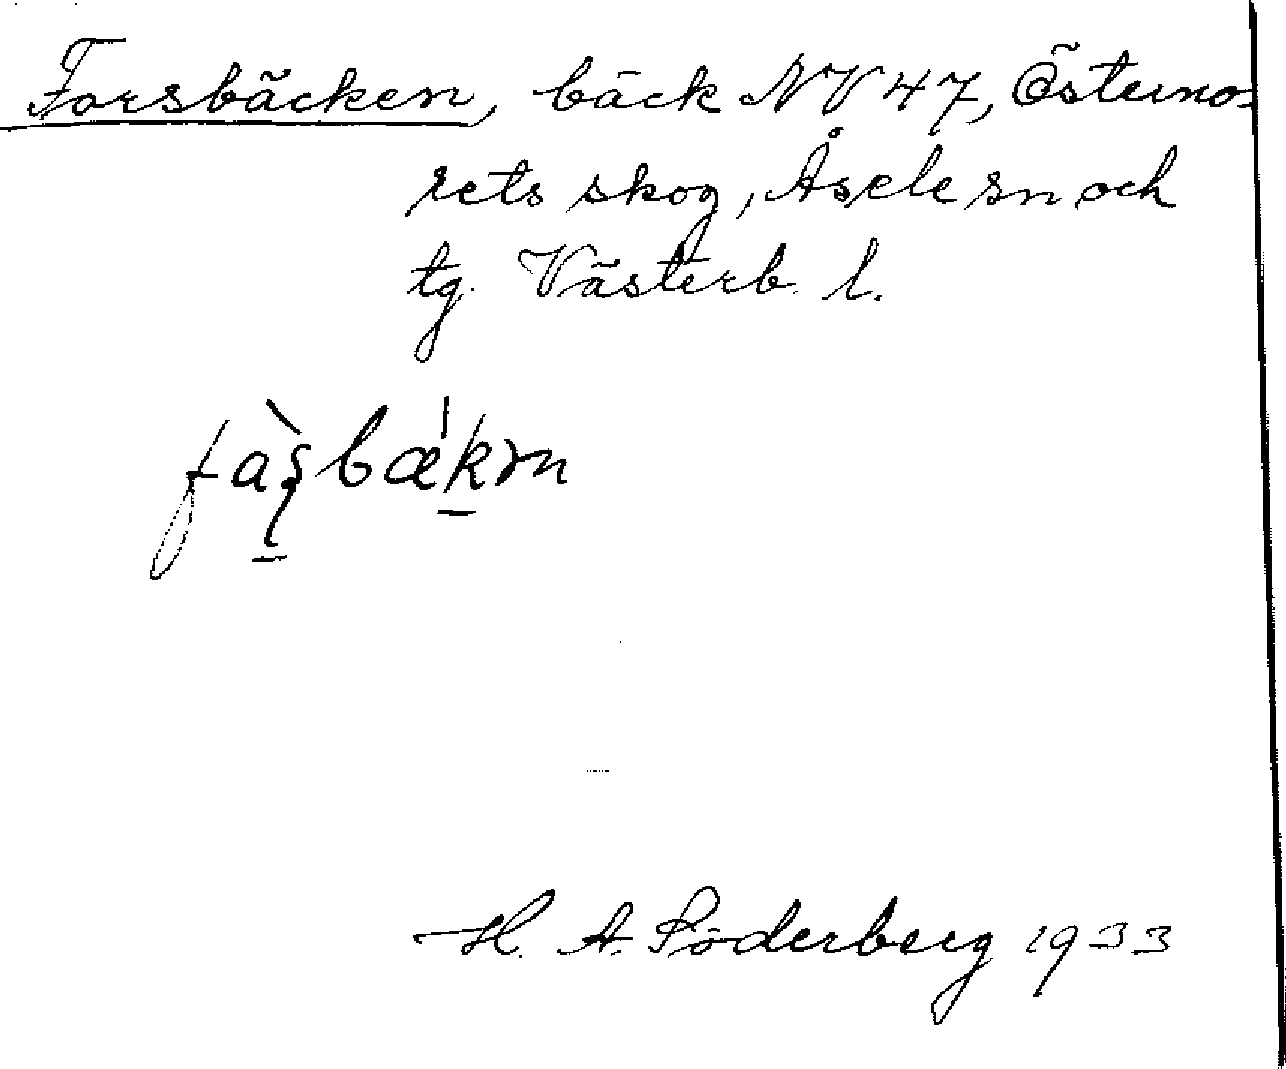 Forsbäcken, bäck NV 47, Österno-
rets skog, Åsele sn och
tg. Västerb. l.
H. A. Söderberg 1933